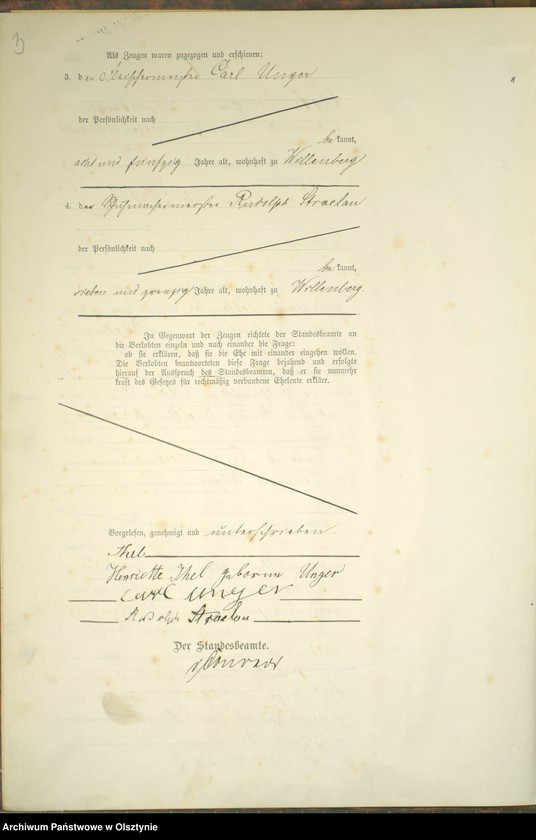 3
Als Zeugen waren zugezogen und erschienen:
3. der Fleischermeister Carl Unger
der Persönlichkeit nach
be kannt,
acht und fünfzig Jahre alt, wohnhaft zu Willenberg
4. der Schuhmachermeister Rudolph Straelau
der Persönlichkeit nach
be kannt,
sieben und zwanzig Jahre alt, wohnhaft zu Willenberg.
In Gegenwart der Zeugen richtete der Standesbeamte an
die Verlobten einzeln und nach einander die Frage:
ob sie erklären, daß sie die Ehe mit einander eingehen wollen.
Die Verlobten beantworteten diese Frage bejahend und erfolgte
hierauf der Ausspruch des Standesbeamten, daß er sie nunmehr
kraft des Gesetzes für rechtmäßig verbundene Eheleute erkläre.
Vorgelesen, genehmigt und unterschrieben.
Henriette Thel geborene Unger
Carl Unger
Rudolph Straelau
Der Standesbeamte.
Conrad
Archiwum Państwowe w Olsztynie